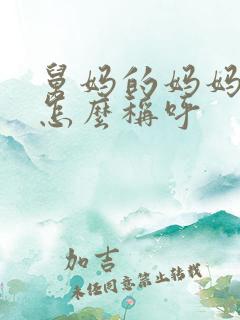 舅妈的妈妈
怎麽稱呼
加吉
未经同意禁止转载